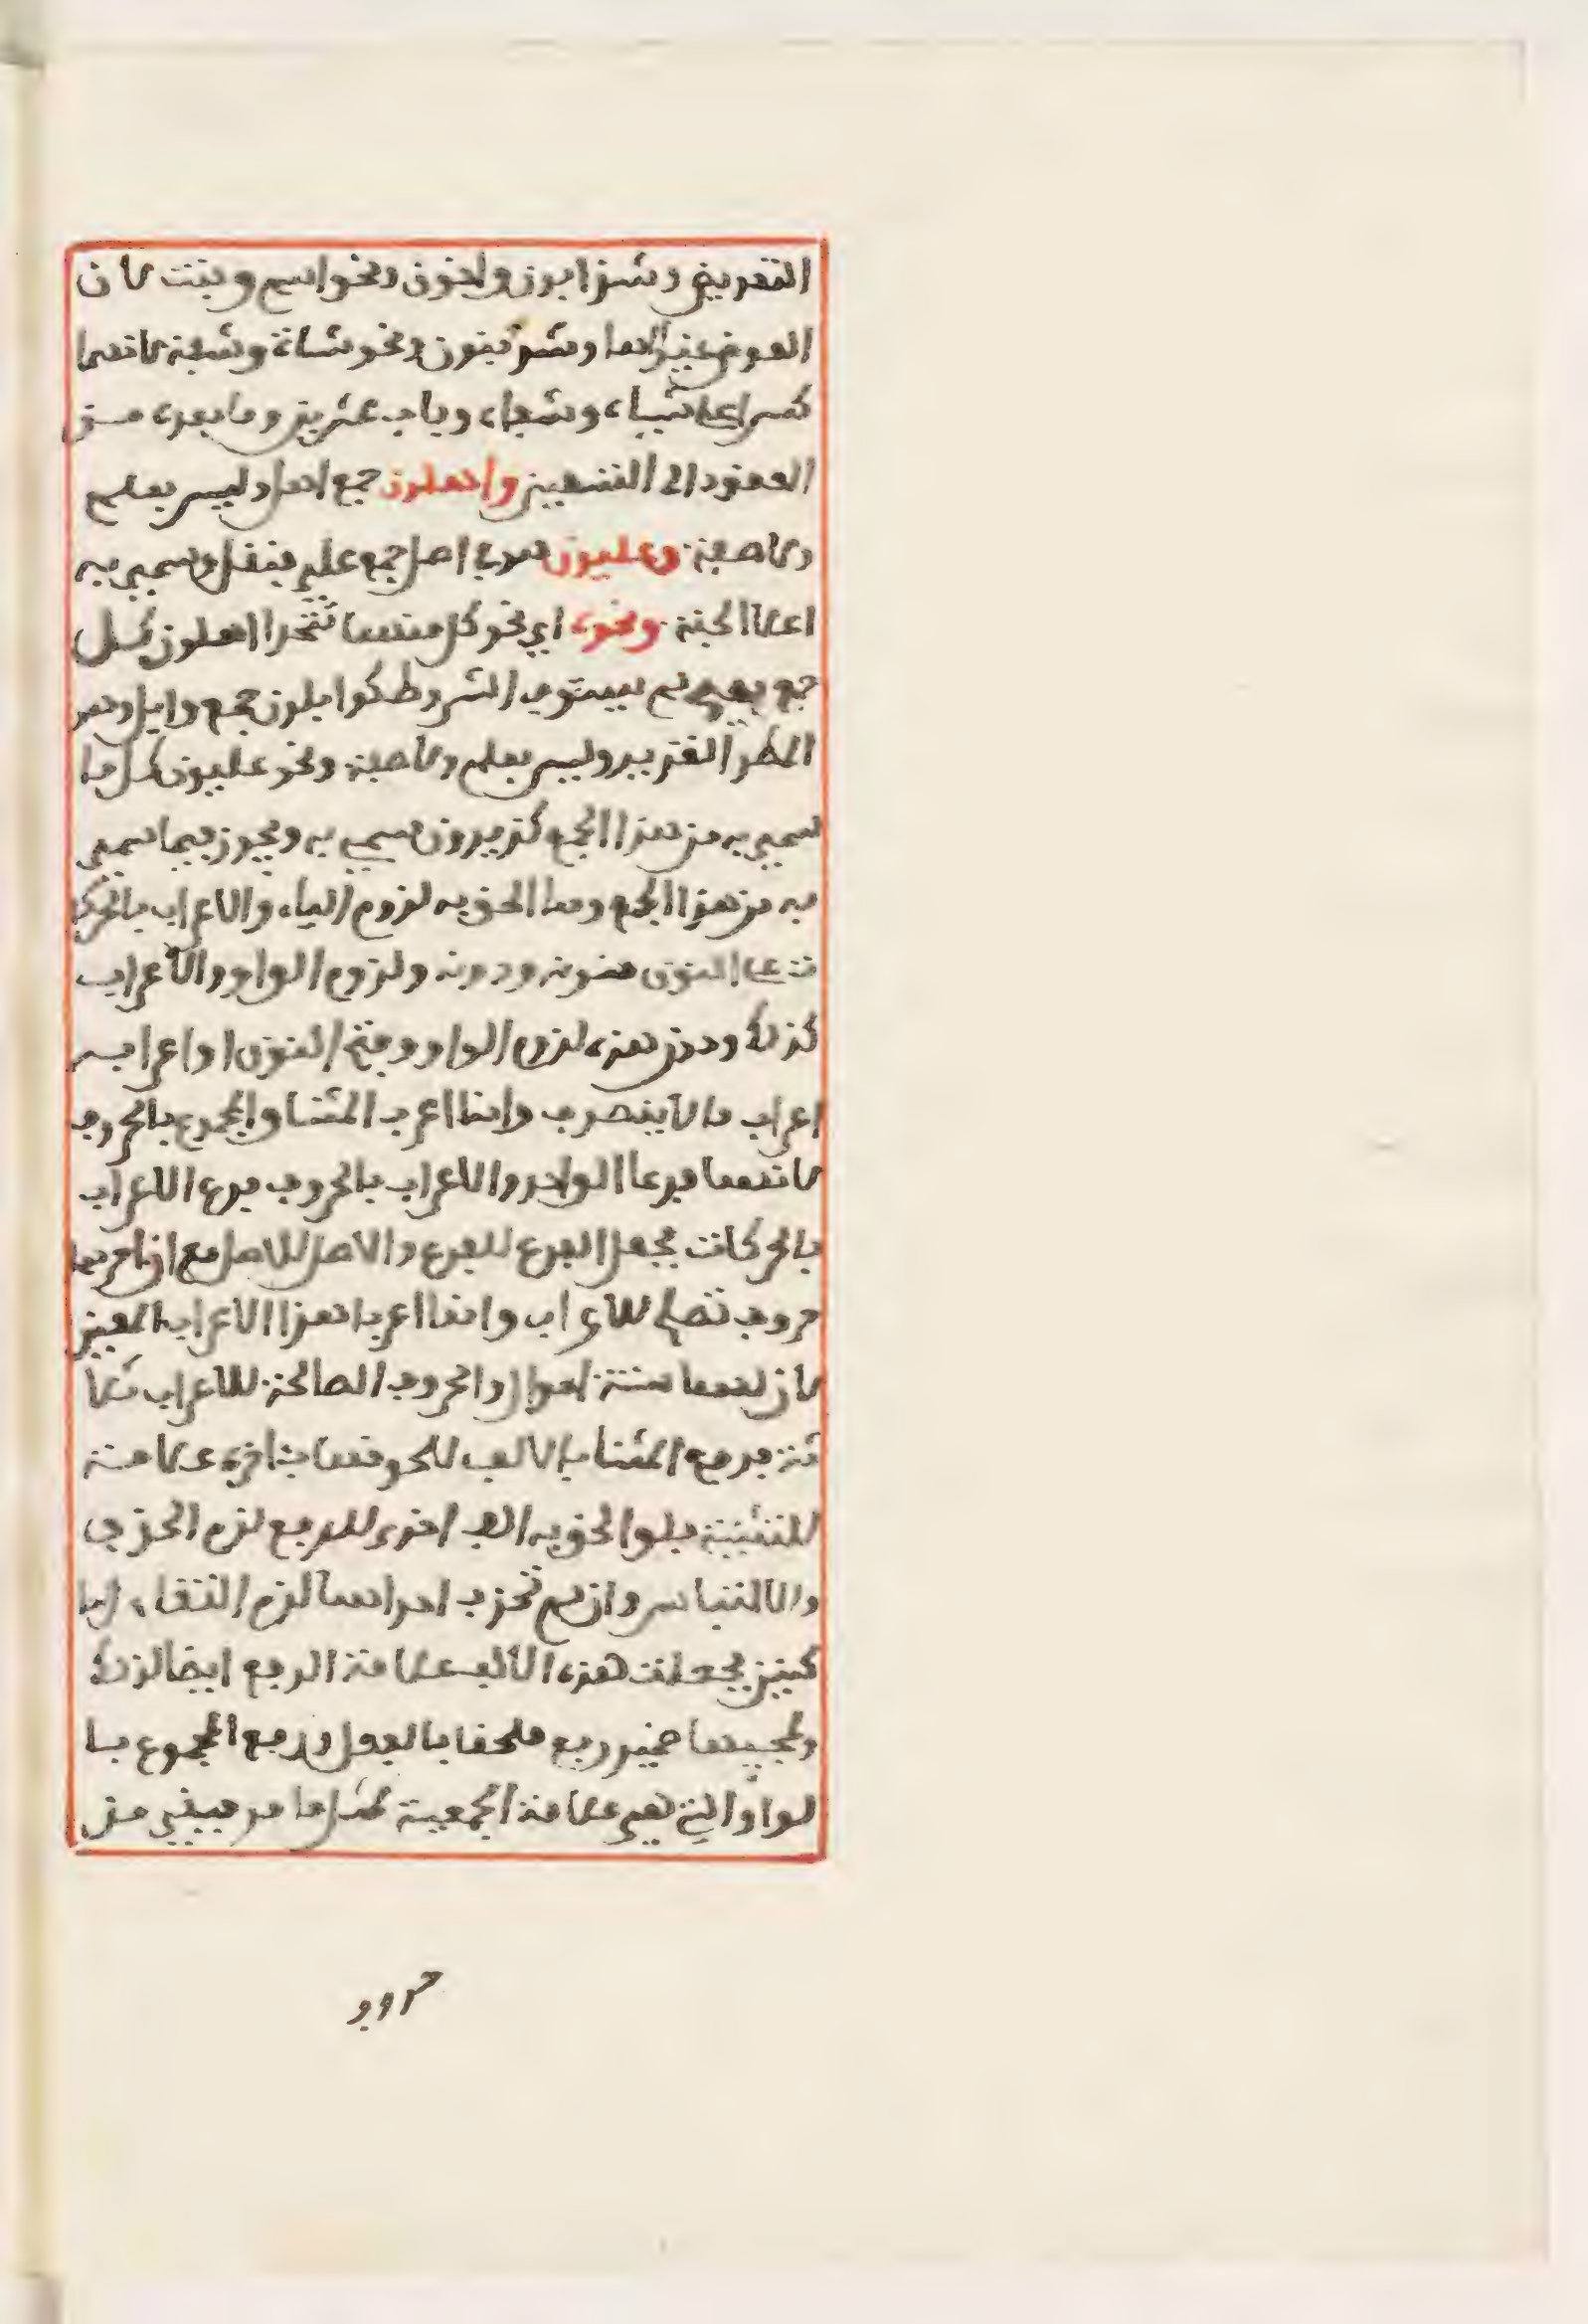 التعويض وشذ ابون واخون ونحو اسم وبنت لان
العوض غير الها وشذ بنون ونحو شاة وشفة لانهما
كسرا على شياه وشفاه وباب عشرين وما بعده من
العقود الى التسعين واهلون جمع اهل وليس بعلم
ولا صفة وعليون هو في اصل جمع علي فنقل وسمي به
اعلا الجنة ونحوه اي نحو كل منهما فنحو اهلون كل
جمع تصحيح لم يستوف الشروط كوابلون جمع وابل وهو
المطر الغزير وليس بعلم ولا صفة ونحو عليون كل ما
سمي به من هذا الجمع كزيدون مسمى به ويجوز فيما سمي
به من هذا الجمع وما الحق به لزوم الياء والاعراب بالحركا
ت على النون منونة ودونه ولزوم الواو والاعراب
كذلك ودون هذه لزوم الواو وفتح النون او اعرابه
اعراب ما لا ينصرف وانما اعرب المثنا والمجموع بالحروف
لانهما فرعا الواحد والاعراب بالحروف فرع الاعراب
بالحركات فجعل الفرع للفرع والاصل للاصل مع ان اخرهما
حروف تصلح للاعراب وانما اعربا هذا الاعراب المعين
لان لهما ستة احوال والحروف الصالحة للاعراب ثلا
ثة فرفع المثنا بالالف للحوقها باخره علامة
للتثنية فلو الحق به الف اخرى للرفع لزم الحذف
والالتباس وان لم تحذف احداهما لزم التقاء السا
كنين فجعلت هذه الالف علامة الرفع ايضا لذلك
ولمجيئها ضمير رفع ملحقا بالفعل ورفع المجموع با
لواو التي هي علامة الجمعية لمثل ما مر فبقي من
حروف